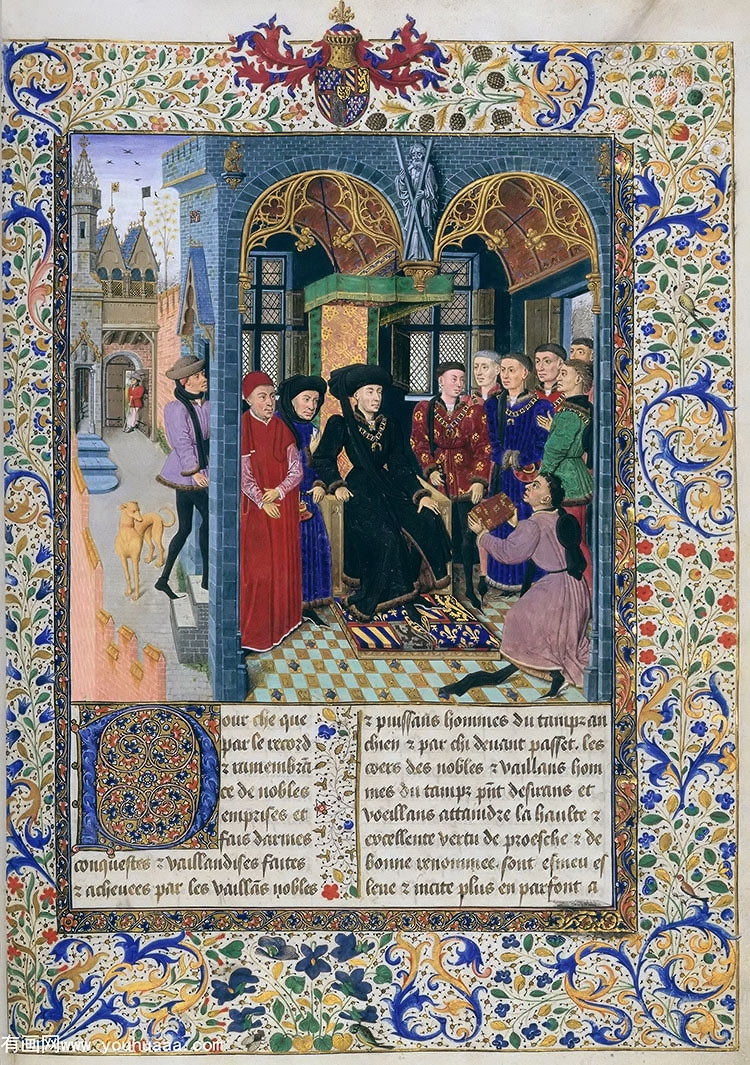 Pour che que
par le record
⁊ ramembrã
ce de nobles
emprises et
fais darmes
conquestes ⁊ vaillandises faites
⁊ acheuees par les vaillãs nobles
⁊ puissans hommes du tamps an
chien ⁊ par chi deuant passet. les
coers des nobles ⁊ vaillans hom
mes du tamps pñt desirans et
voeillans attaindre la haulte ⁊
excellente vertu de proesche ⁊ de
bonne renommee. sont esmeu es
leue ⁊ incite plus en parfont a
有画网www.youhuaaa.com